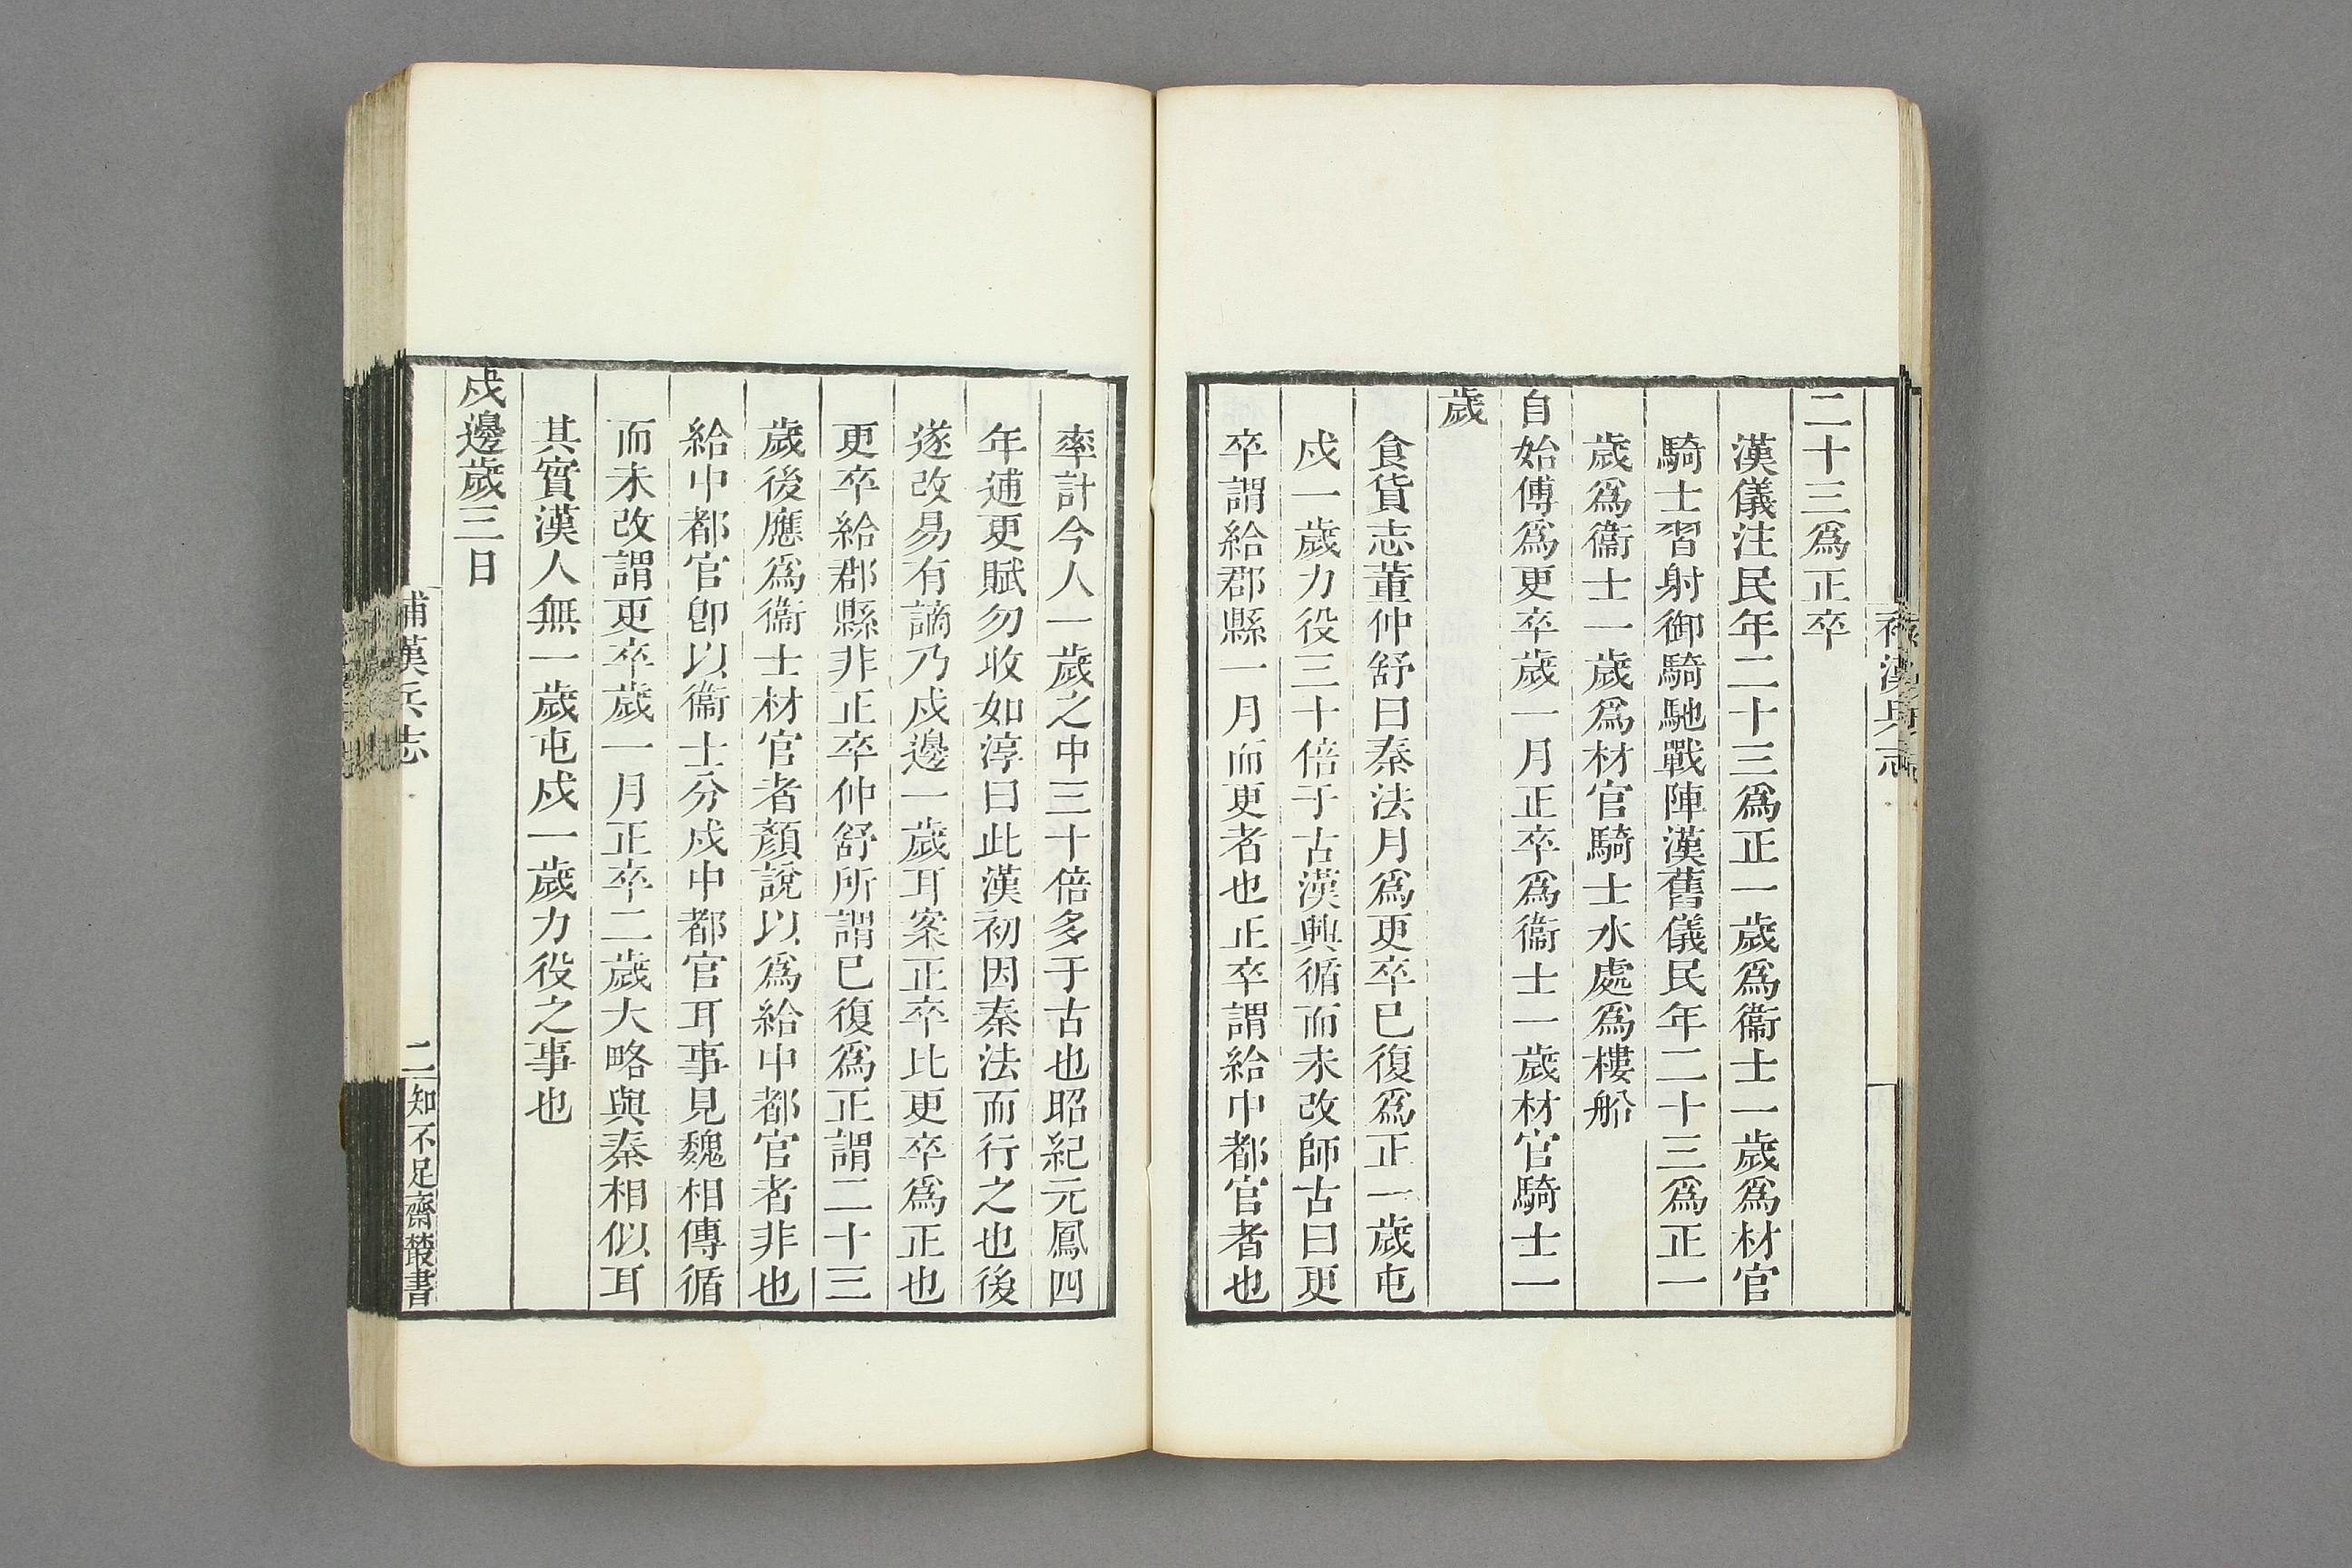 二十三爲正卒
漢儀注民年二十三爲正一歲爲衞士一歲爲材官
騎士習射御騎馳戰陣漢舊儀民年二十三爲正一
歲爲衞士一歲爲材官騎士水處爲樓船
自始傅爲更卒歲一月正卒爲衞士一歲材官騎士一
歲
食貨志董仲舒曰秦法月爲更卒已復爲正一歲屯
戍一歲力役三十倍于古漢興循而未改師古曰更
卒謂給郡縣一月而更者也正卒謂給中都官者也
率計今人一歲之中三十倍多于古也昭紀元鳳四
年逋更賦勿收如淳曰此漢初因秦法而行之也後
遂改易有謫乃戍邊一歲耳案正卒比更卒爲正也
更卒給郡縣非正卒仲舒所謂已復爲正謂二十三
歲後應爲衞士材官者顏說以爲給中都官者非也
給中都官卽以衞士分戍中都官耳事見魏相傳循
而未改謂更卒歲一月正卒二歲大略與秦相似耳
其實漢人無一歲屯戍一歲力役之事也
戍邊歲三日
補漢兵志
二
知不足齋叢書